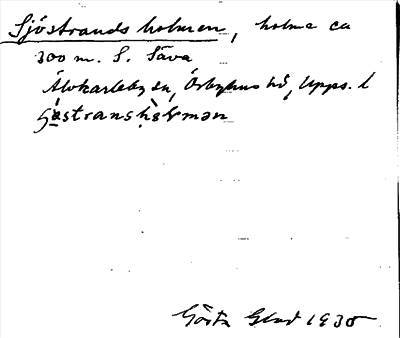 Sjöstrandsholmen, holme ca
300 m. S. Säva
Älvkarleby sn, Örbyhus hd, Upps. l
Gösta Glad 1930